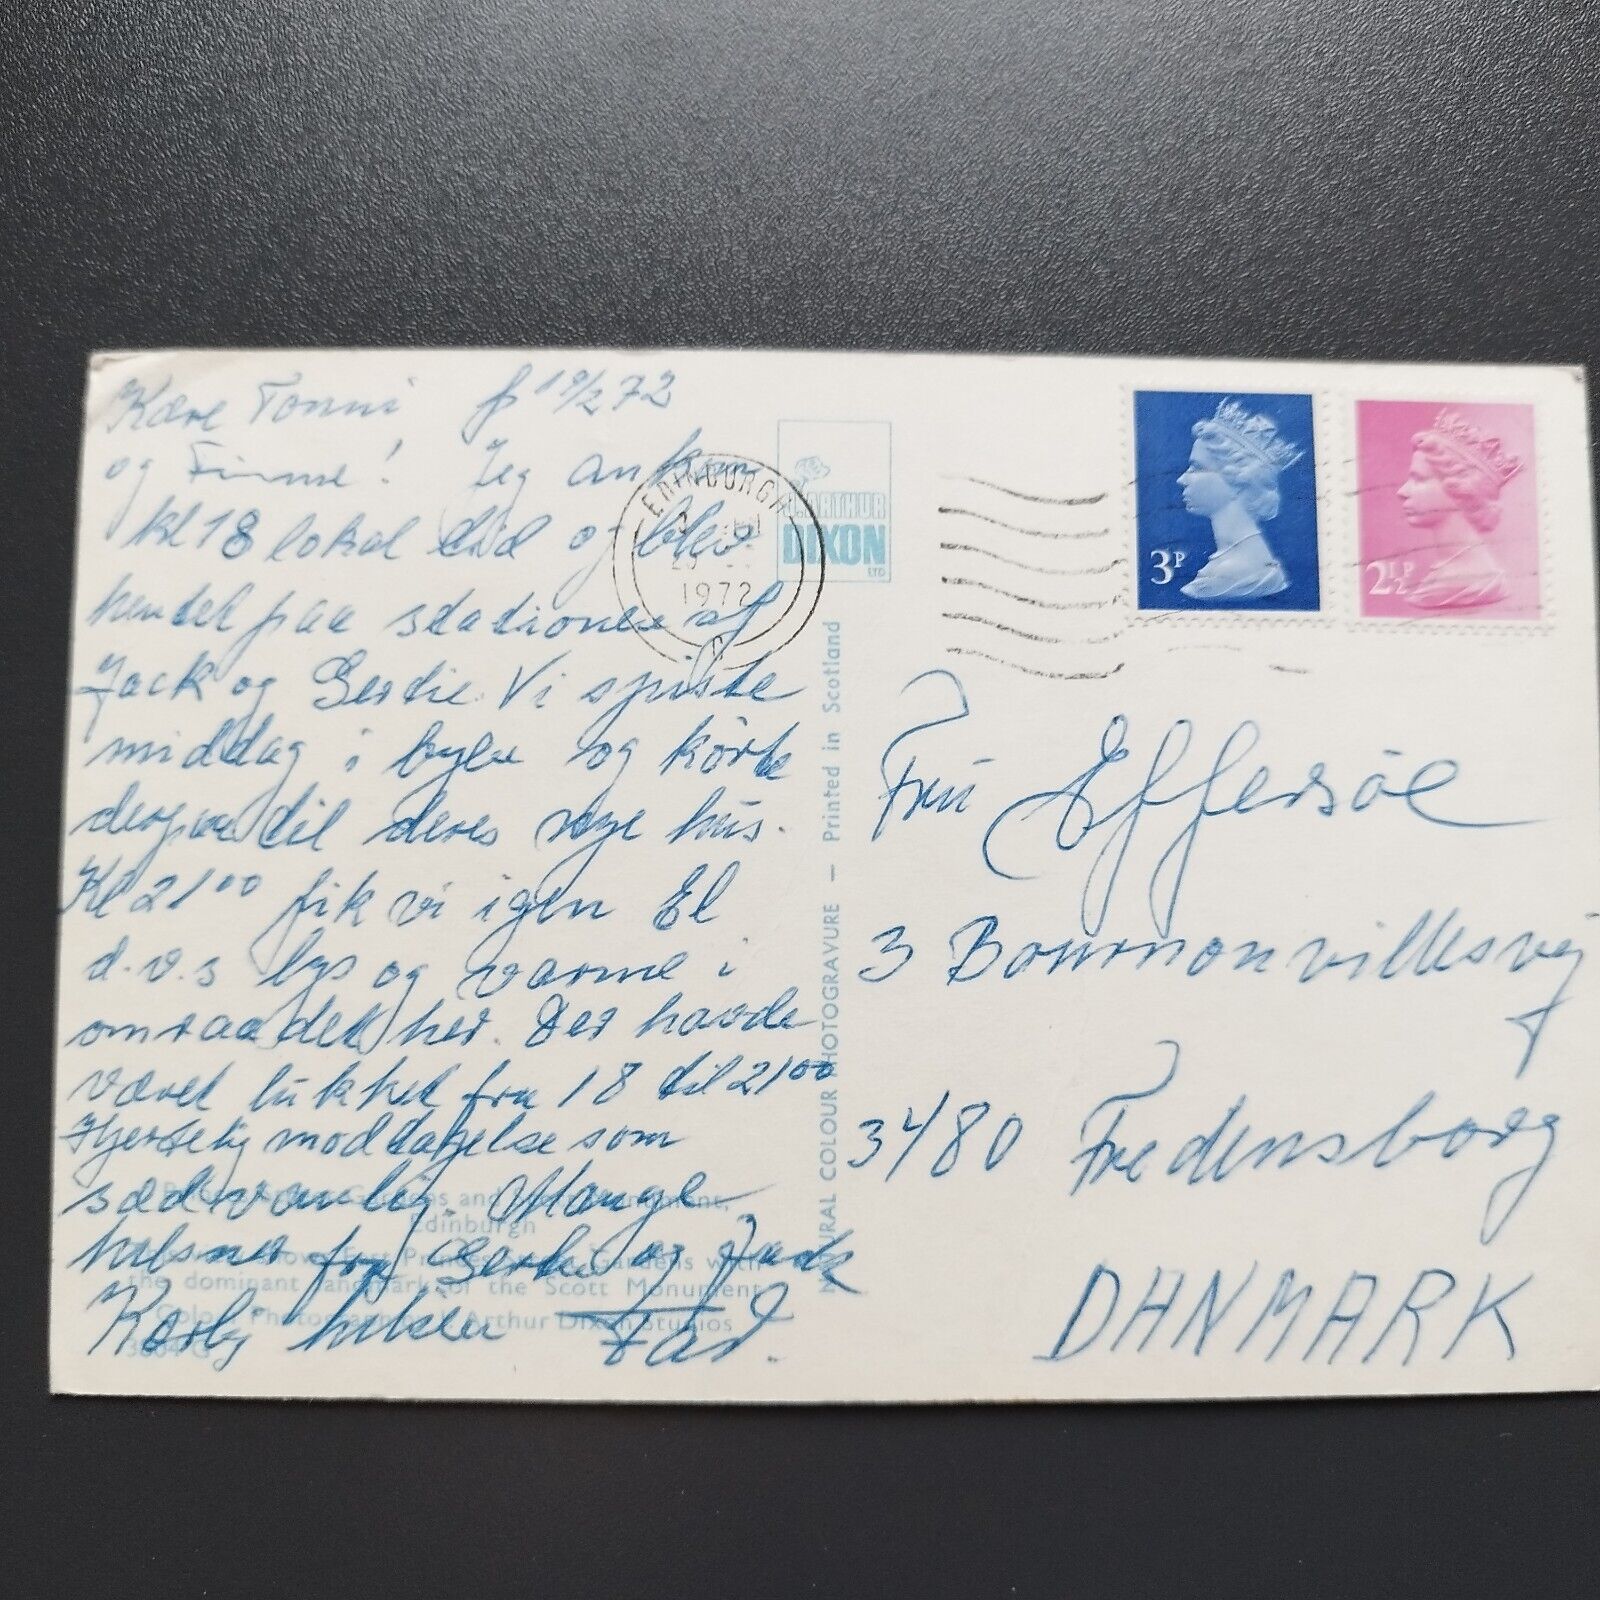 Kære Tonni f 19/2 72
og Finne! Jeg ankom
kl 18 lokal tid og blev
hentet paa stationen af
Jack og Gertie. Vi spiste
middag i byen og kørte
derpaa til deres nye hus.
Kl 21⁰⁰ fik vi igen El
d.v.s lys og varme i
omraadet her. Der havde
været lukket fra 18 til 21⁰⁰
Hjertelig modtagelse som
sædvanlig. Mange
hilsner fra Gertie og Jack
Kærlig hilsen Far.
EDINBURGH
1972
J. ARTHUR
DIXON
LTD
3P
2½P
Fru Effersøe
3 Bournonvillesvej
3480 Fredensborg
DANMARK
NATURAL COLOUR PHOTOGRAVURE — Printed in Scotland
Gardens and Monument,
Edinburgh
East Princes Gardens with
the dominant landmark of the Scott Monument
Colour Photograph Arthur Dixon Studios